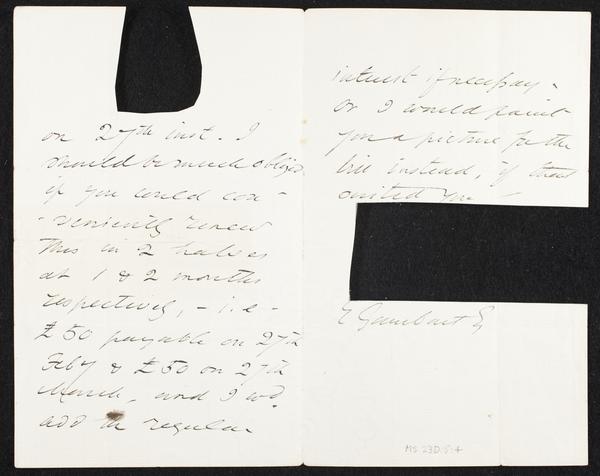 on 27th inst. I
should be much obliged
if you could con-
-veniently renew
this in 2 halves
at 1 & 2 months
respectively, - i.e -
£50 payable on 27th
Feby & £50 on 27th
March, and I wd.
add the regular
interest if necessary.
or I would paint
you a picture for the
bill instead, if that
suited you -
E Gambart Esq
MS 23D.